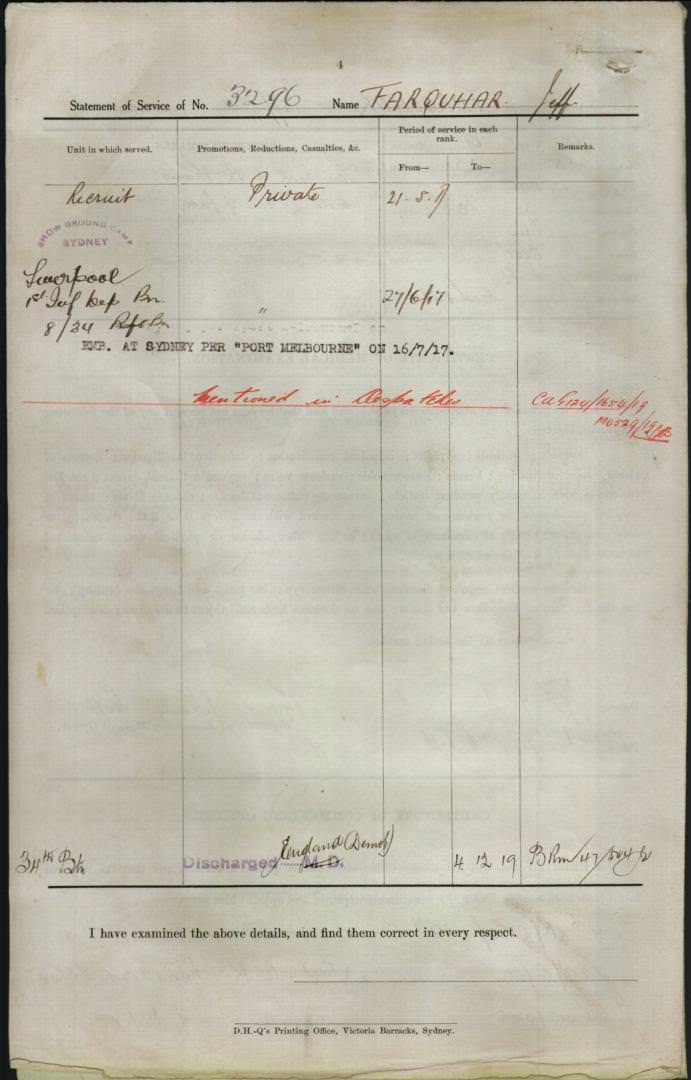 4
Statement of Service of No. 3296 Name FARQUHAR Jeff
Unit in which served. Promotions, Reductions, Casualties, &c. Period of service in each rank. Remarks.
From— To—
Recruit Private 21.5.17
SHOW GROUND CAMP
SYDNEY
Liverpool
1st Inf Dep Bn. " 27/6/17
8/34 Rfts
EMB. AT SYDNEY PER "PORT MELBOURNE" ON 16/7/17.
Mentioned in Despatches
34th Bn Discharged M.D. England (Demob) 4 12 19
I have examined the above details, and find them correct in every respect.
D.H.-Q's Printing Office, Victoria Barracks, Sydney.